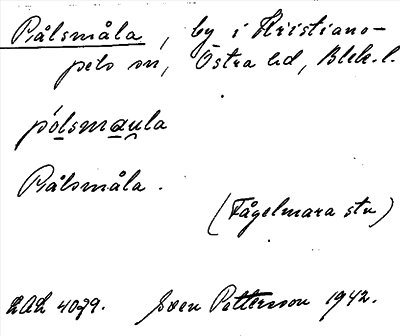 Pålsmåla, by i Kristiano-
pels sn, Östra hd, Blek. l.
pólsmau̯la
Pålsmåla.
(Fågelmara stn)
LAL 4079. Sven Pettersson 1942.